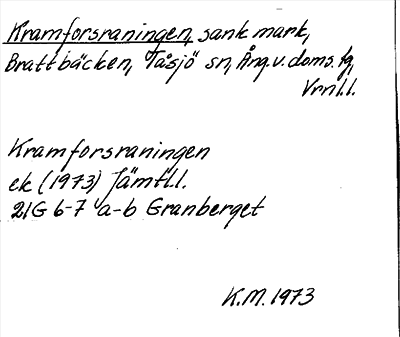 Kramforsraningen, sank mark,
Brattbäcken, Tåsjö sn, Ång.v.doms.fg,
Vrnl.l.
Kramforsraningen
ek (1973) Jämtl.l.
21G 6-7 a-b Granberget
K.M. 1973